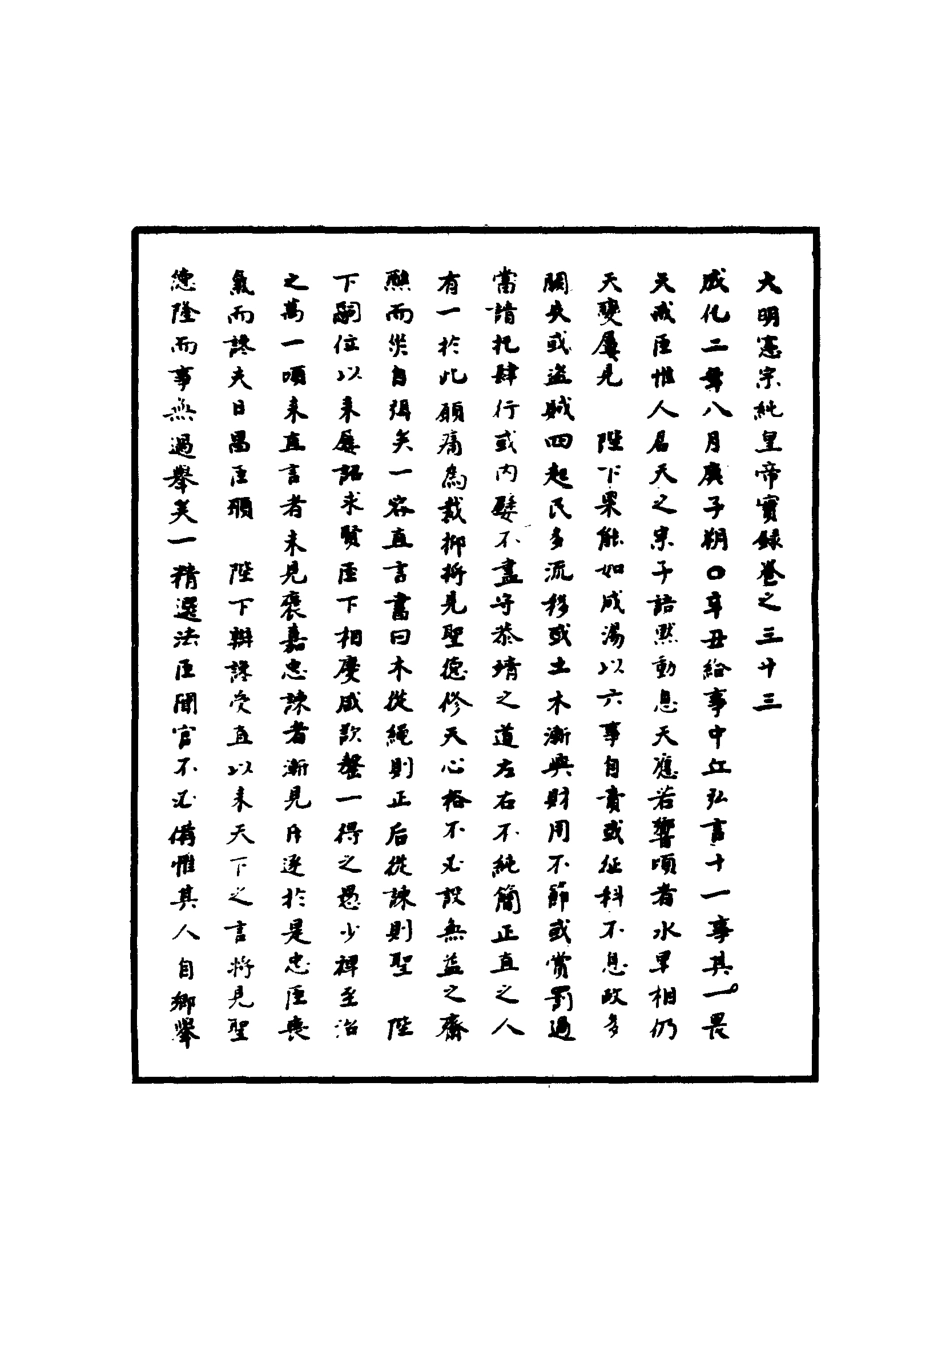 大明憲宗純皇帝實錄卷之三十三
成化二年八月庚子朔○辛丑給事中丘弘言十一事其一畏
天戒臣惟人君天之宗子語默動息天應若響頃者水旱相仍
天變屢見　陛下果能如成湯以六事自責或征科不息政多
闕失或盜賊四起民多流移或土木漸興財用不節或賞罰過
當請托肆行或內嬖不盡守恭靖之道左右不純簡正直之人
有一於此願痛為裁抑將見聖德修天心格不必設無益之齋
醮而災自弭矣一容直言書曰木從繩則正后從諫則聖　陛
下嗣位以來屢詔求賢臣下相慶咸欲罄一得之愚少裨至治
之萬一頃來直言者未見褒嘉忠諫者漸見斥逐於是忠臣喪
氣而諛夫日昌臣願　陛下辨諛受直以來天下之言將見聖
德隆而事無過舉矣一精選法臣聞官不必備惟其人自鄉舉